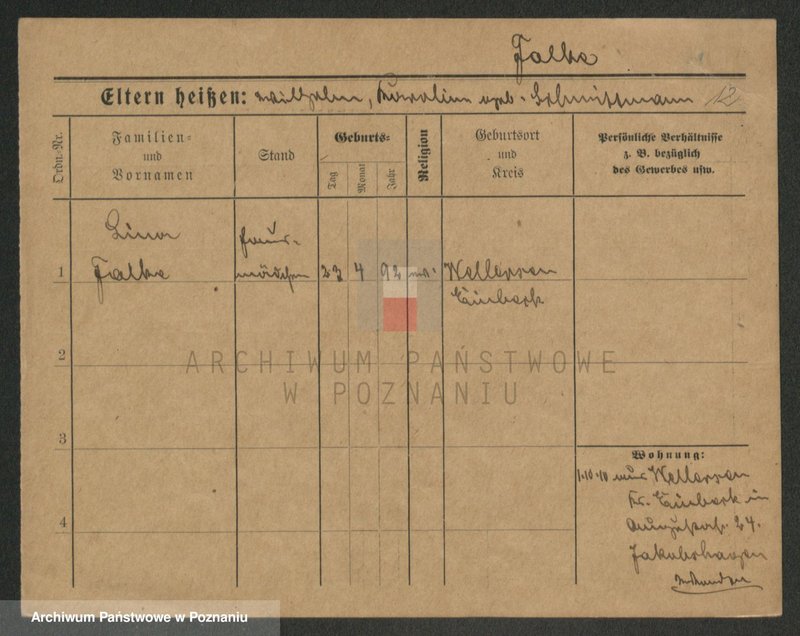 Falke
Eltern heißen: Wilhelm, Karoline geb. Schnittmann 12
Ordn.-Nr.
Familien-
und
Vornamen
Stand
Geburts-
Tag
Monat
Jahr
Religion
Geburtsort
und
Kreis
Persönliche Verhältnisse
z. B. bezüglich
des Gewerbes usw.
Lina Haus-
1 Falke mädchen 23 4 92 ev. Wellersen
Einbeck
ARCHIWUM PAŃSTWOWE
W POZNANIU
2
3
4
Wohnung:
1.10.10 aus Wellersen
Kr. Einbeck in
24.
Archiwum Państwowe w Poznaniu